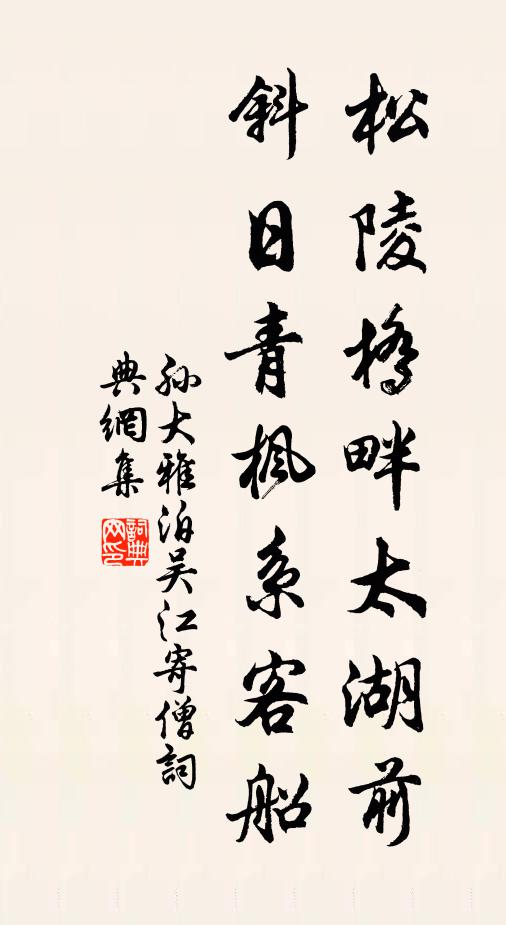 松陵橋畔太湖前
斜日青楓系客船
孫大雅泊吴江寄僧詞
典網集
詞典网印